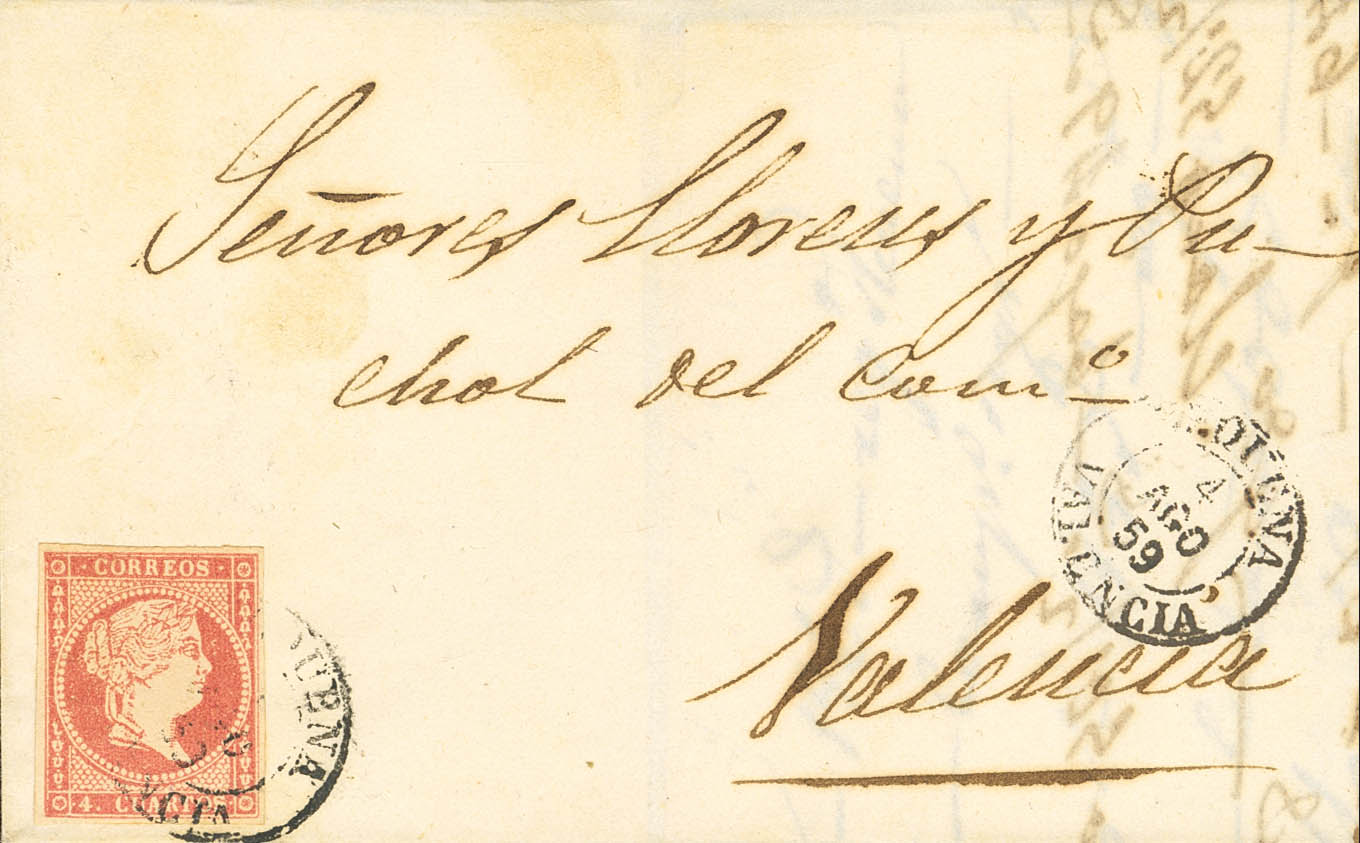 Señores Llorens y Pu-
chol del Comº
Valencia
REQUENA
4
AGO
59
VALENCIA
CORREOS
4. CUARTOS